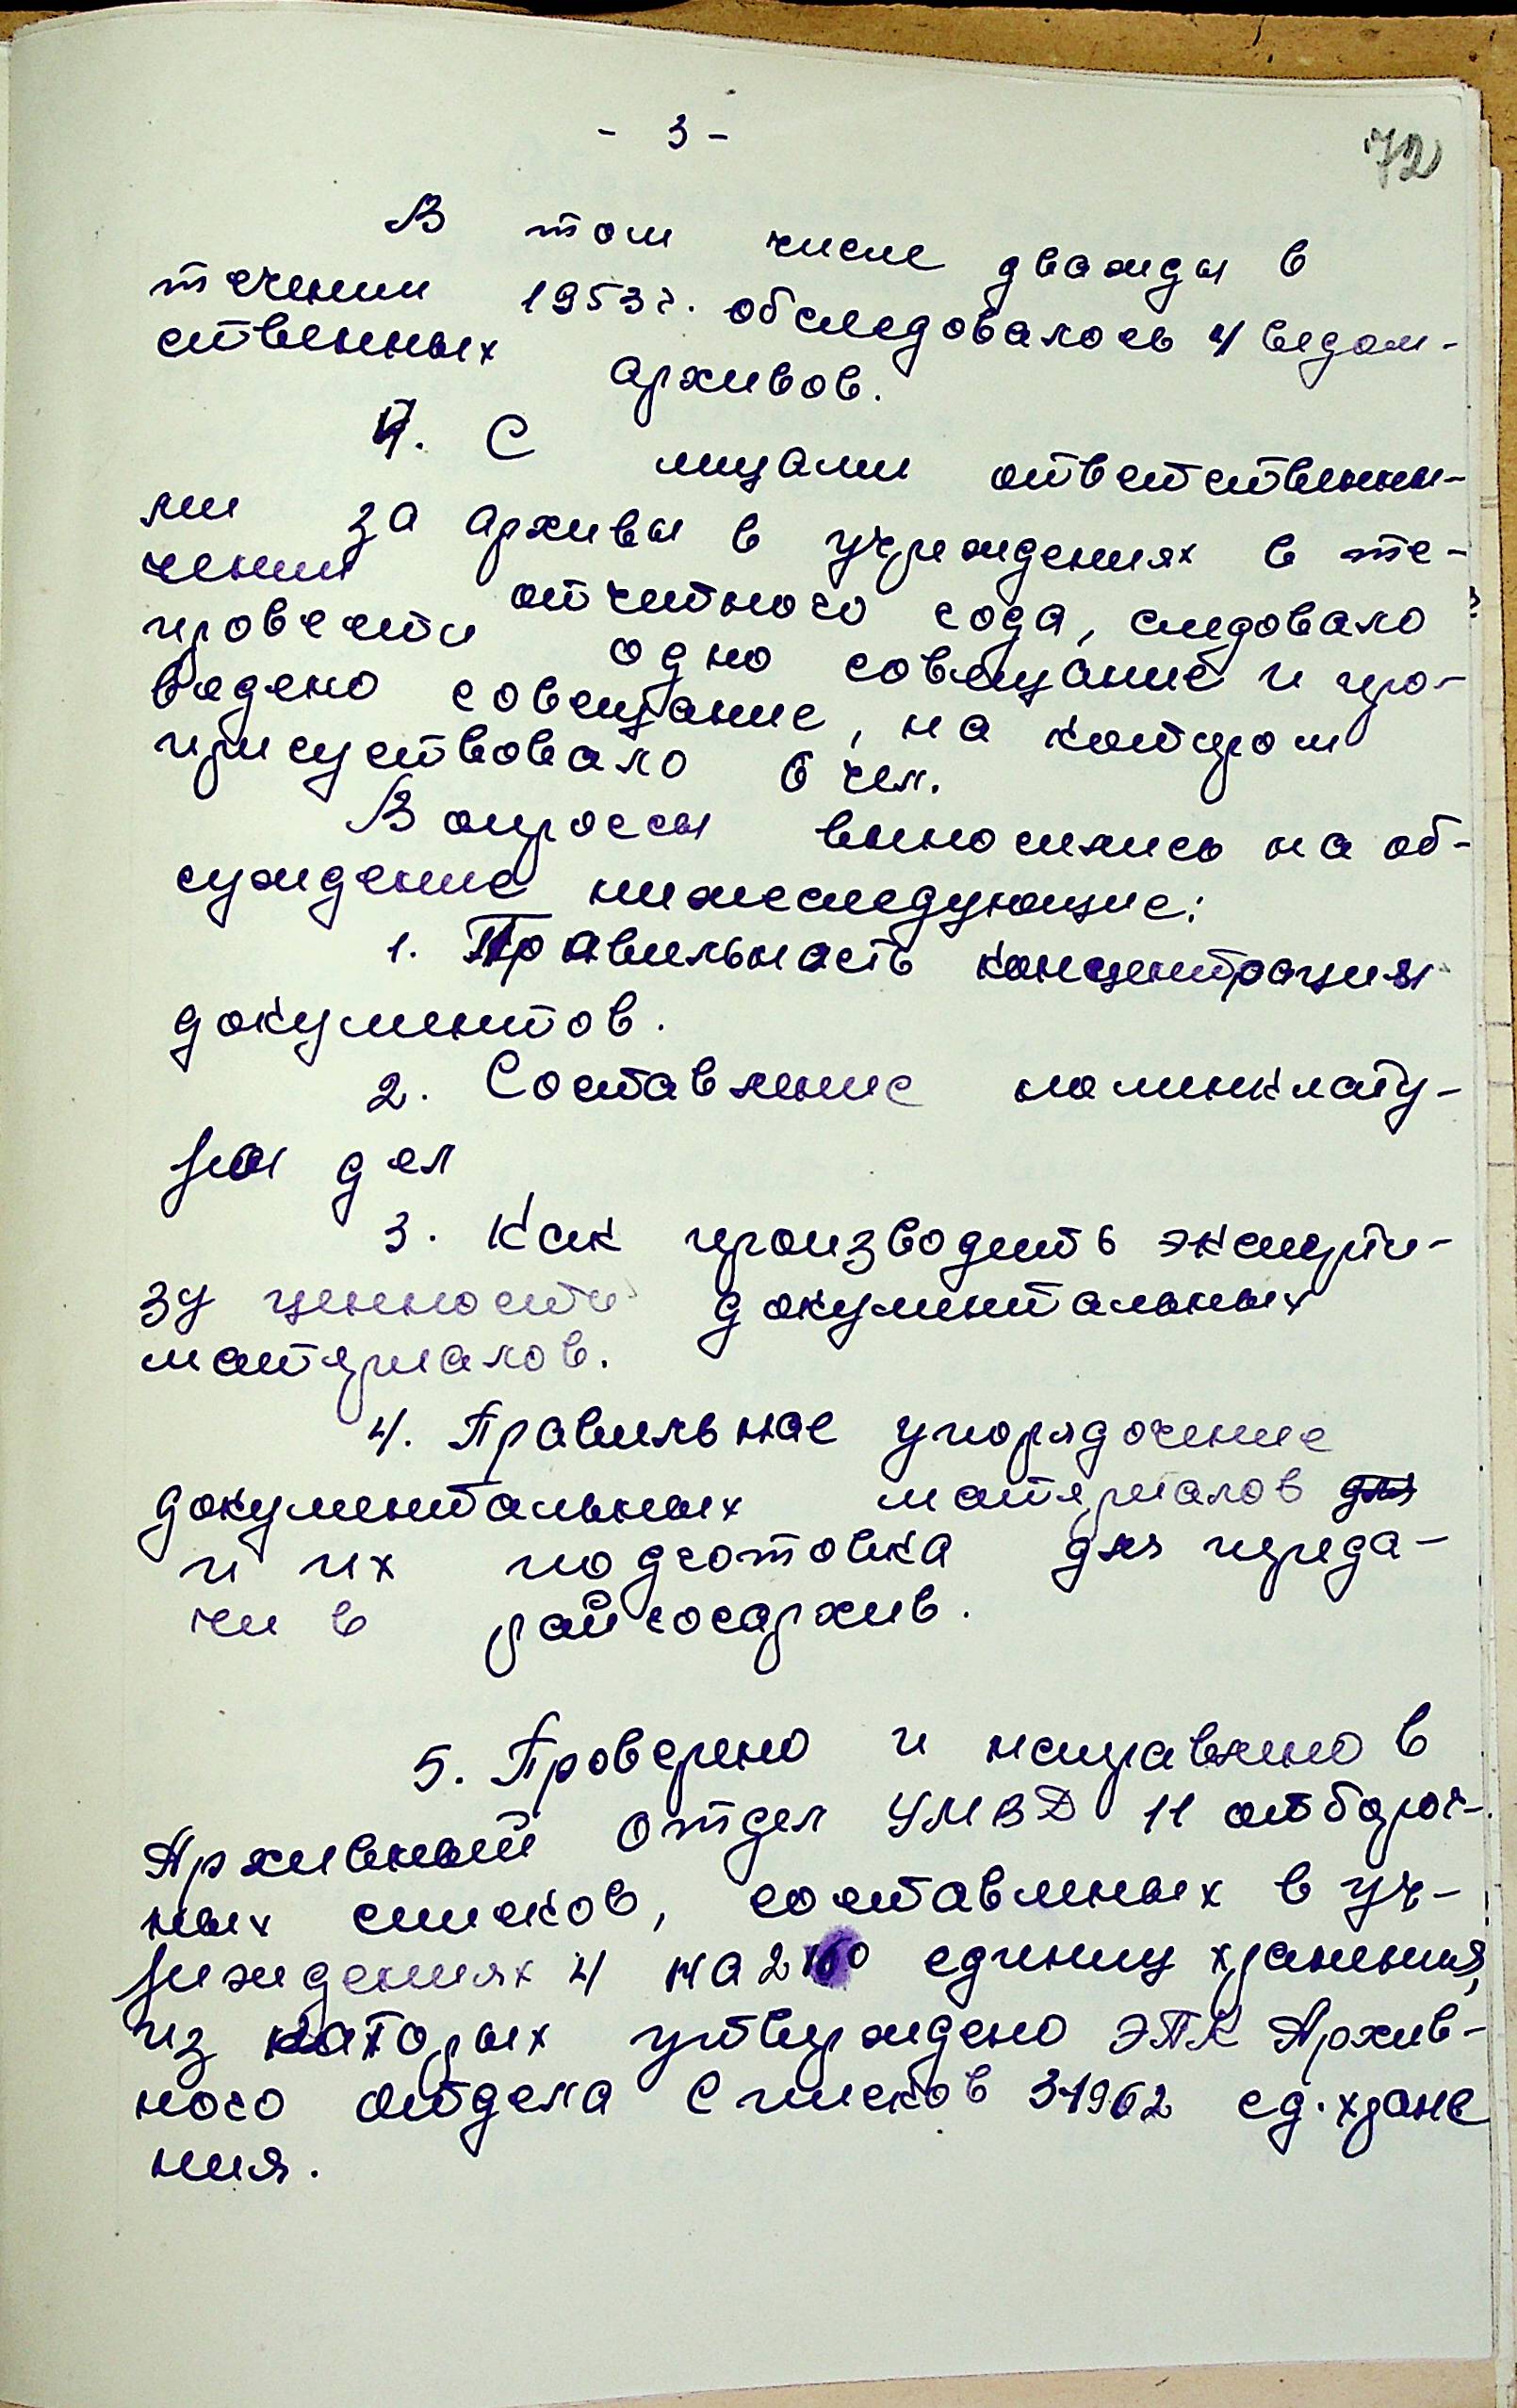 - 3 -
72
В том числе дважды в
течении 1953 г. обследовалось 4 ведом-
ственных архивов.
4. С лицами ответственны-
ми за архивы в учреждениях в те-
чении отчетного года, следовало
провести одно совещание и про-
ведено совещание, на котором
присуствовало 6 чел.
Вопроссы выносились на об-
суждение нижеследующие:
1. Правильность концентрация
документов.
2. Составление номинклату-
ры дел
3. Как производить эксперти-
зу ценности документальных
материалов.
4. Правильное упорядочение
документальных материалов для
и их подготовка для переда-
чи в райгосархив.
5. Проверено и исправлено в
Архивный отдел УМВД 11 отбороч-
ных списков, составленых в уч-
реждениях 4 на единиц хранения,
из которых утверждено ЭПК Архив-
ного отдела списков 31962 ед. хране
ния.